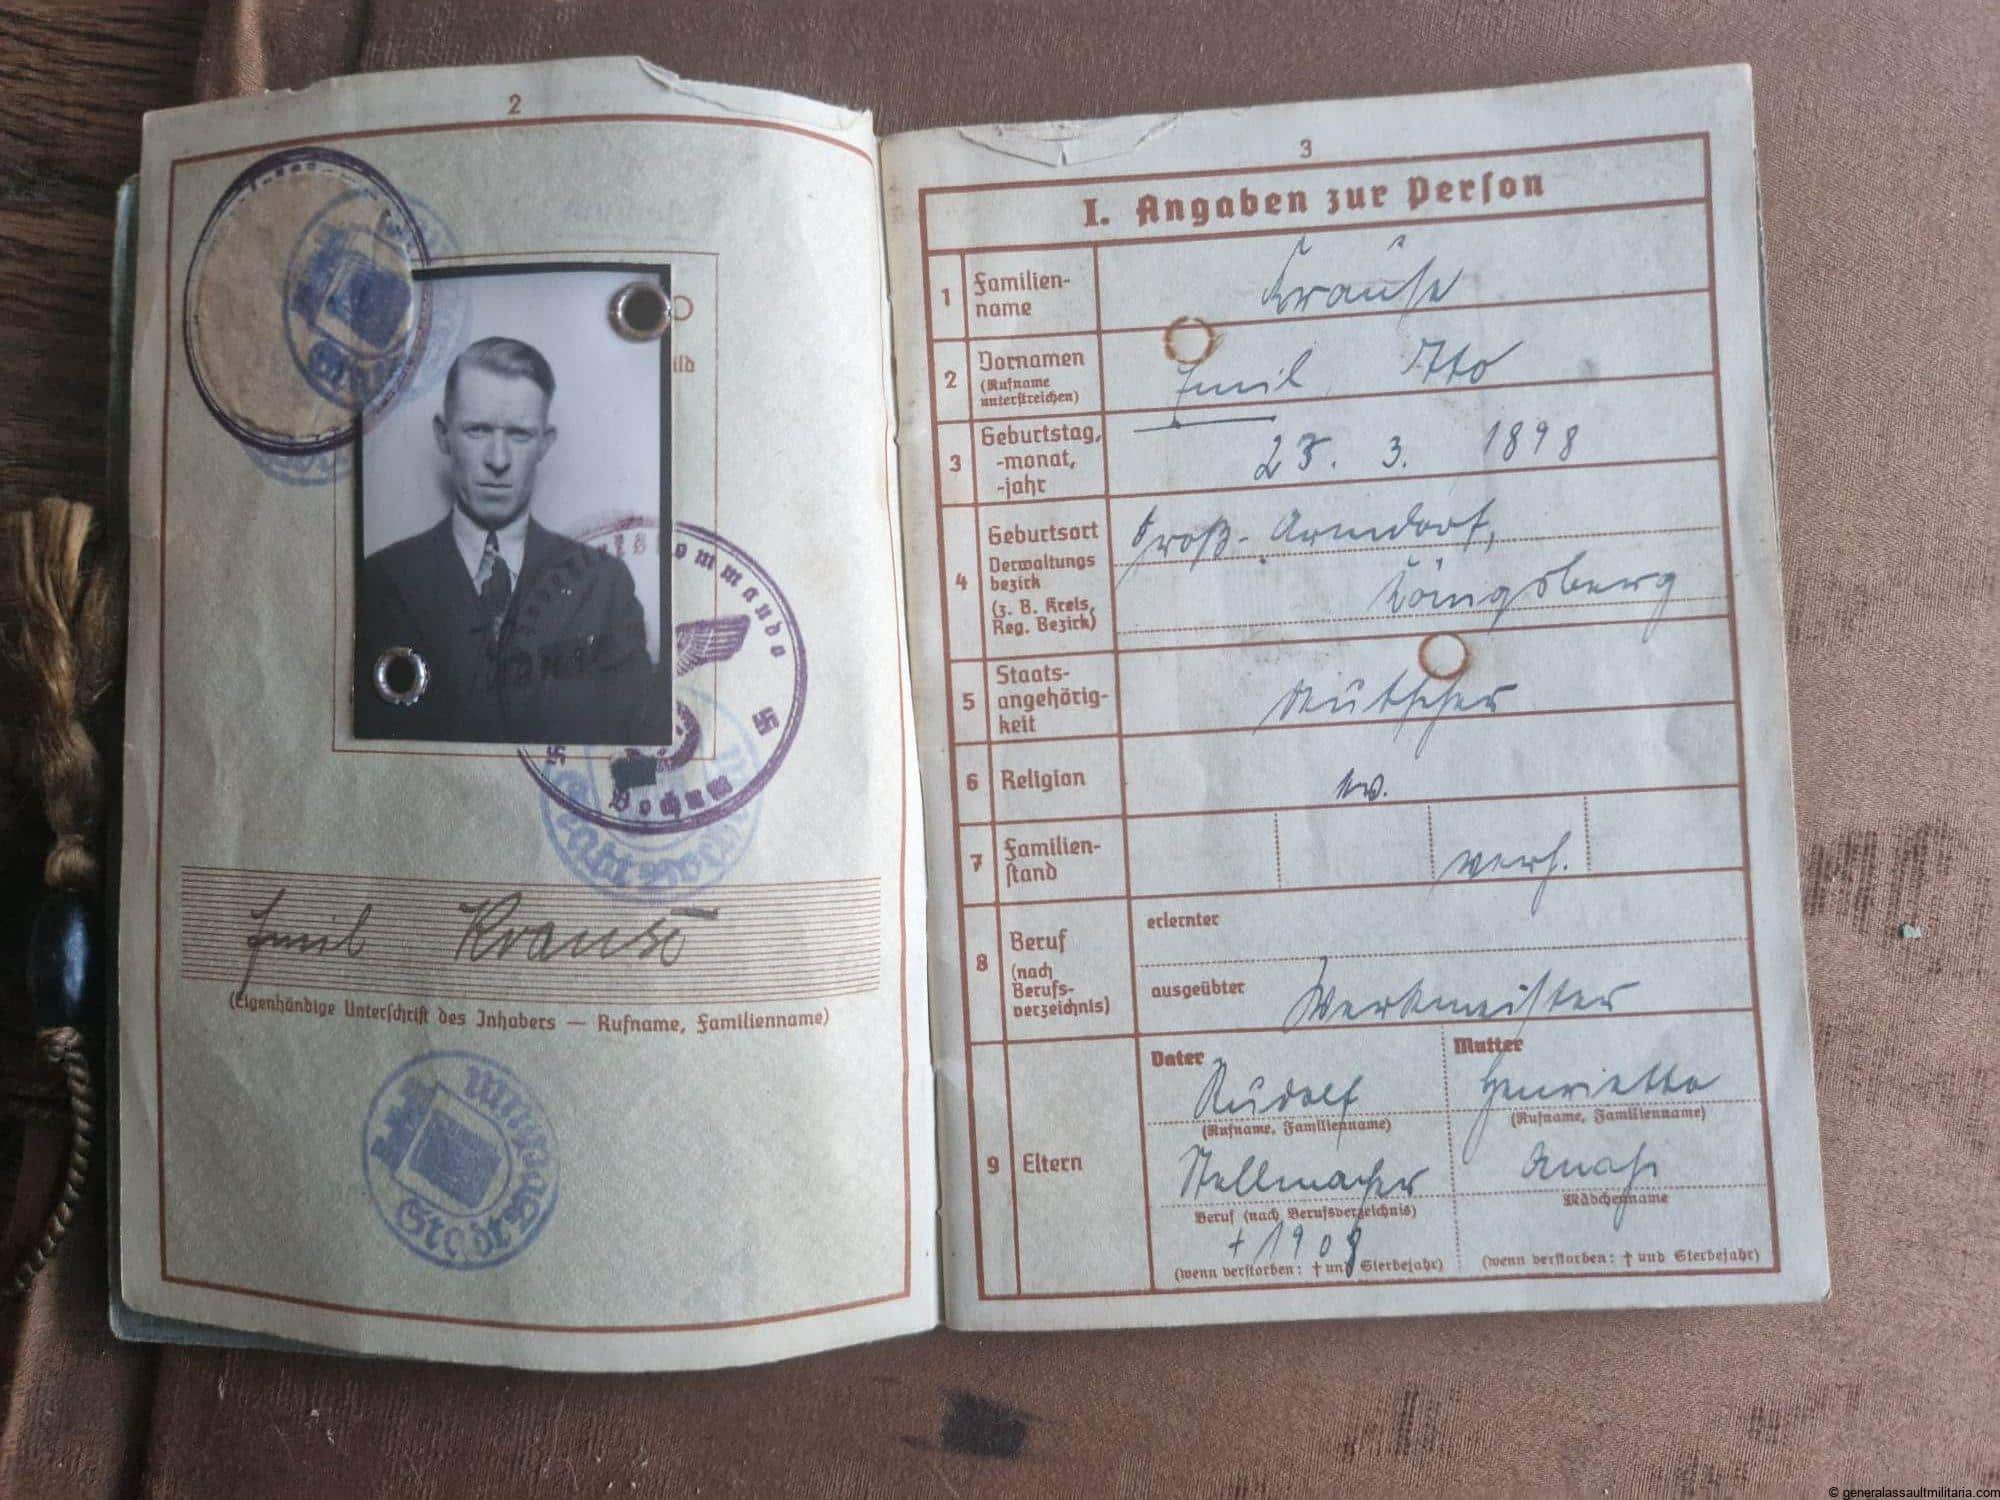 2
ild
Bochum
Emil Krause
(Eigenhändige Unterschrift des Inhabers — Rufname, Familienname)
3
I. Angaben zur Person
1 Familien-
name
Krause
2 Vornamen
(Rufname
unterstreichen)
Emil Otto
3 Geburtstag,
-monat,
-jahr
25. 3. 1898
4 Geburtsort
Verwaltungs
bezirk
(z. B. Kreis,
Reg. Bezirk)
Groß-
Königsberg
5 Staats-
angehörig-
keit
Deutscher
6 Religion
ev.
7 Familien-
stand
verh.
8 Beruf
(nach
Berufs-
verzeichnis)
erlernter
ausgeübter Werkmeister
9 Eltern
Vater
Rudolf
(Rufname, Familienname)
Stellmacher
Beruf (nach Berufsverzeichnis)
+ 1908
(wenn verstorben: † und Sterbejahr)
Mutter
Henriette
(Rufname, Familienname)
Mädchenname
(wenn verstorben: † und Sterbejahr)
© generalassaultmilitaria.com